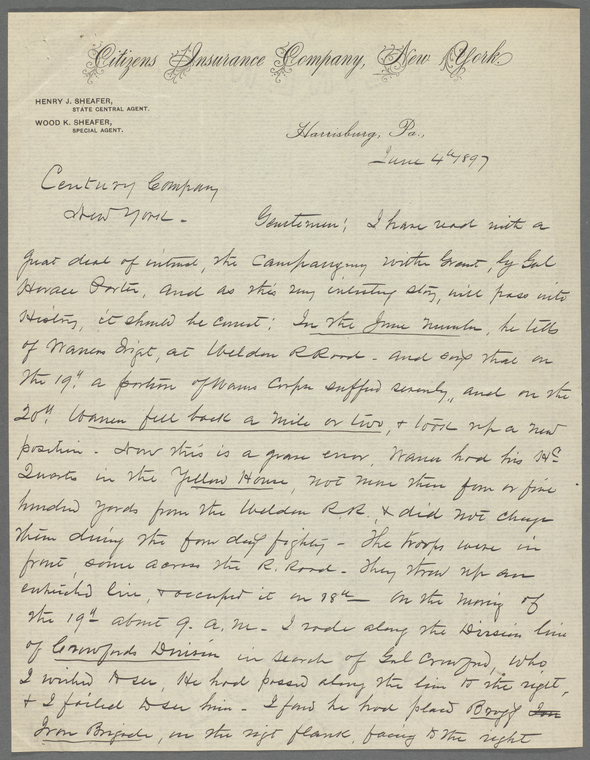 Citizens Insurance Company, New York.
HENRY J. SHEAFER,
STATE CENTRAL AGENT.
WOOD K. SHEAFER,
SPECIAL AGENT.
Harrisburg, Pa.,
June 4th 1897
Century Company
New York - Gentlemen; I have read with a
great deal of interest, the Campaigning with Grant, by Gnl
Horace Porter, and as this very interesting story, will pass into
History, it should be correct: In the June Number, he tells
of Warrens Fight, at Weldon R Road - and says that on
the 19th a portion of Warrens Corps suffered severely, and on the
20th Warren fell back a mile or two, & took up a new
position - Now this is a grave error, Warren had his Hd
Quarters in the Yellow House, not more than four or five
hundred yards from the Weldon R.R. & did not change
them during the four days fighting - The troops were in
front, some across the R. Road - They threw up an
entrenched line, & occupied it on 18th - On the morning of
the 19th about 9. A. M - I rode along the Division line
of Crawfords Division in search of Gnl Crawford, who
I wished to see, He had passed along the line to the right,
& I failed to see him - I found he had placed Braggs
Iron Brigade, on the right flank, facing to the right